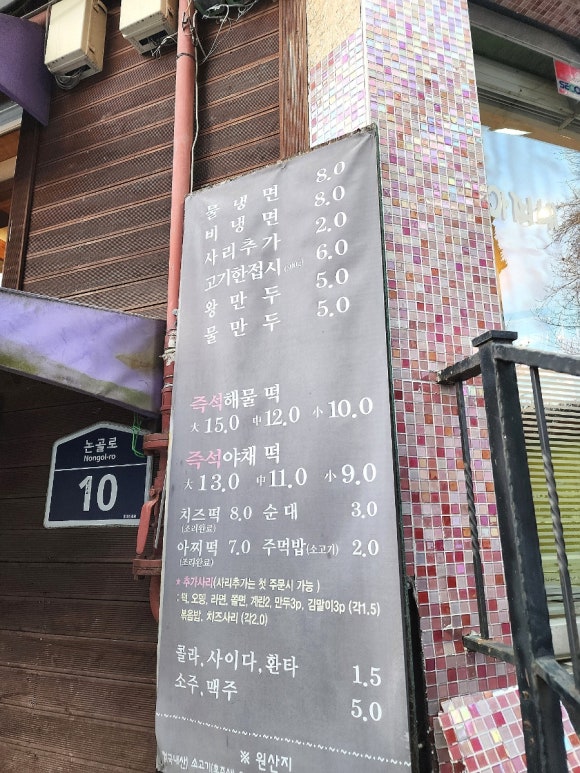 물 냉 면 8.0
비 냉 면 8.0
사리추가 2.0
고기한접시 6.0
왕 만 두 5.0
물 만 두 5.0
즉석해물 떡
大 15.0 中 12.0 小 10.0
즉석야채 떡
大 13.0 中 11.0 小 9.0
치즈떡 8.0 순 대 3.0
(조리완료)
아찌떡 7.0 주먹밥(소고기) 2.0
(조리완료)
* 추가사리(사리추가는 첫 주문시 가능)
: 떡, 오뎅, 라면, 쫄면, 계란2, 만두3p, 김말이3p (각1.5)
볶음밥, 치즈사리 (각2.0)
콜라,사이다,환타 1.5
소주,맥주 5.0
※ 원산지
논골로
Nongol-ro
10